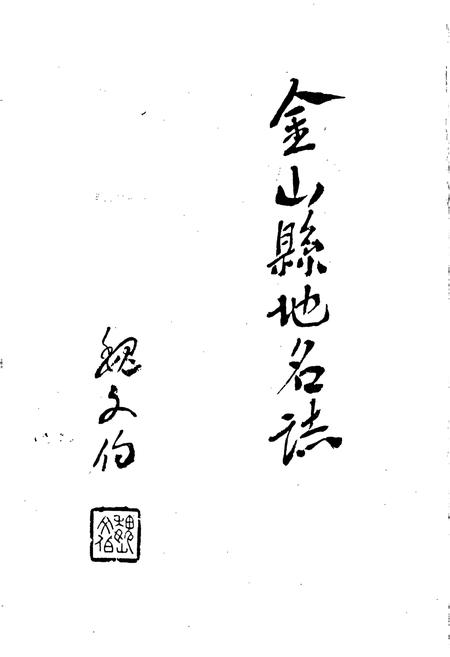 金山縣地名誌
魏文伯
魏文伯